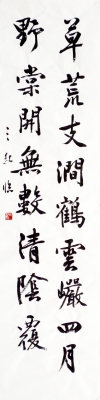 草荒支澗鶴雲巖四月
野棠開無數清陰覆
三紀臨